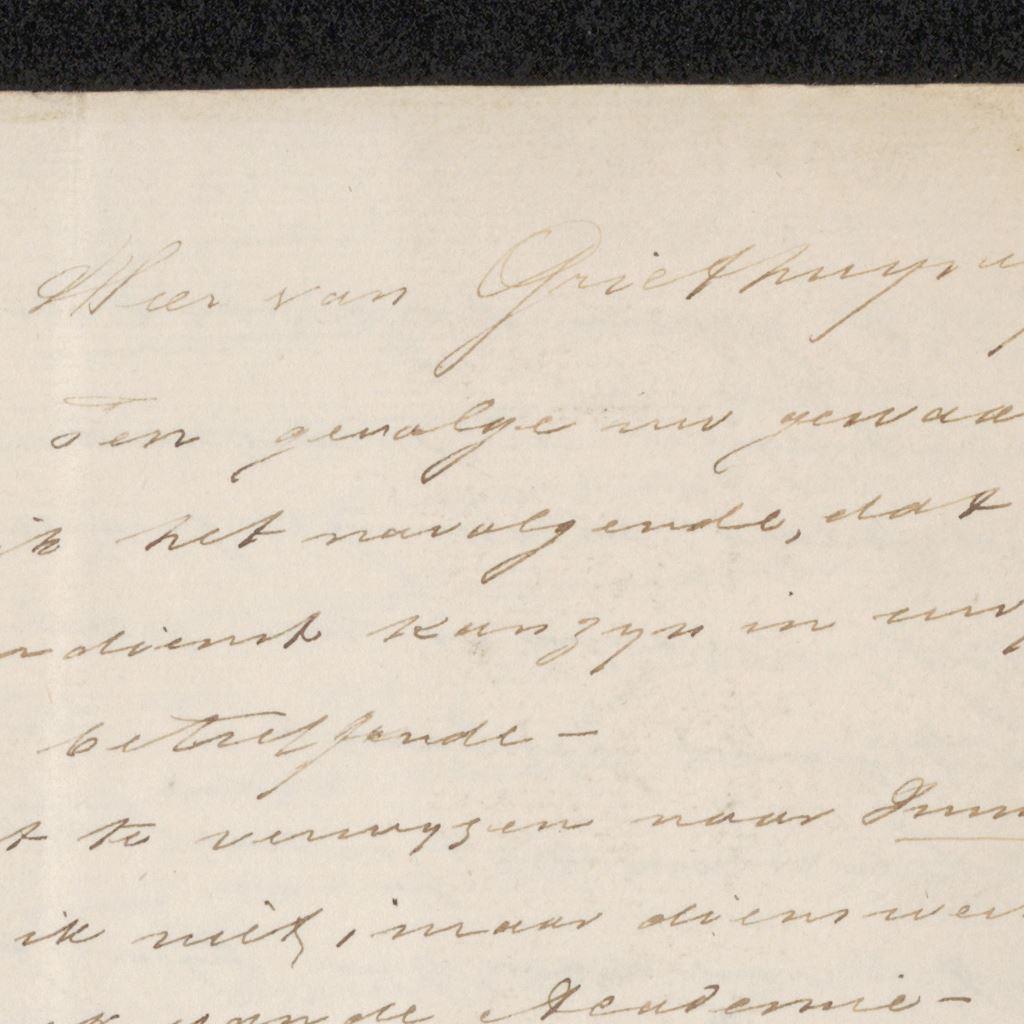 Heer van Griethuyse
Ten gevolge uw gewaa
ik het navolgende, dat
ndienst kan zyn in uw
betreffende –
t te verwyzen naar Imm
ik niet, maar diens wer
k van de Academie –